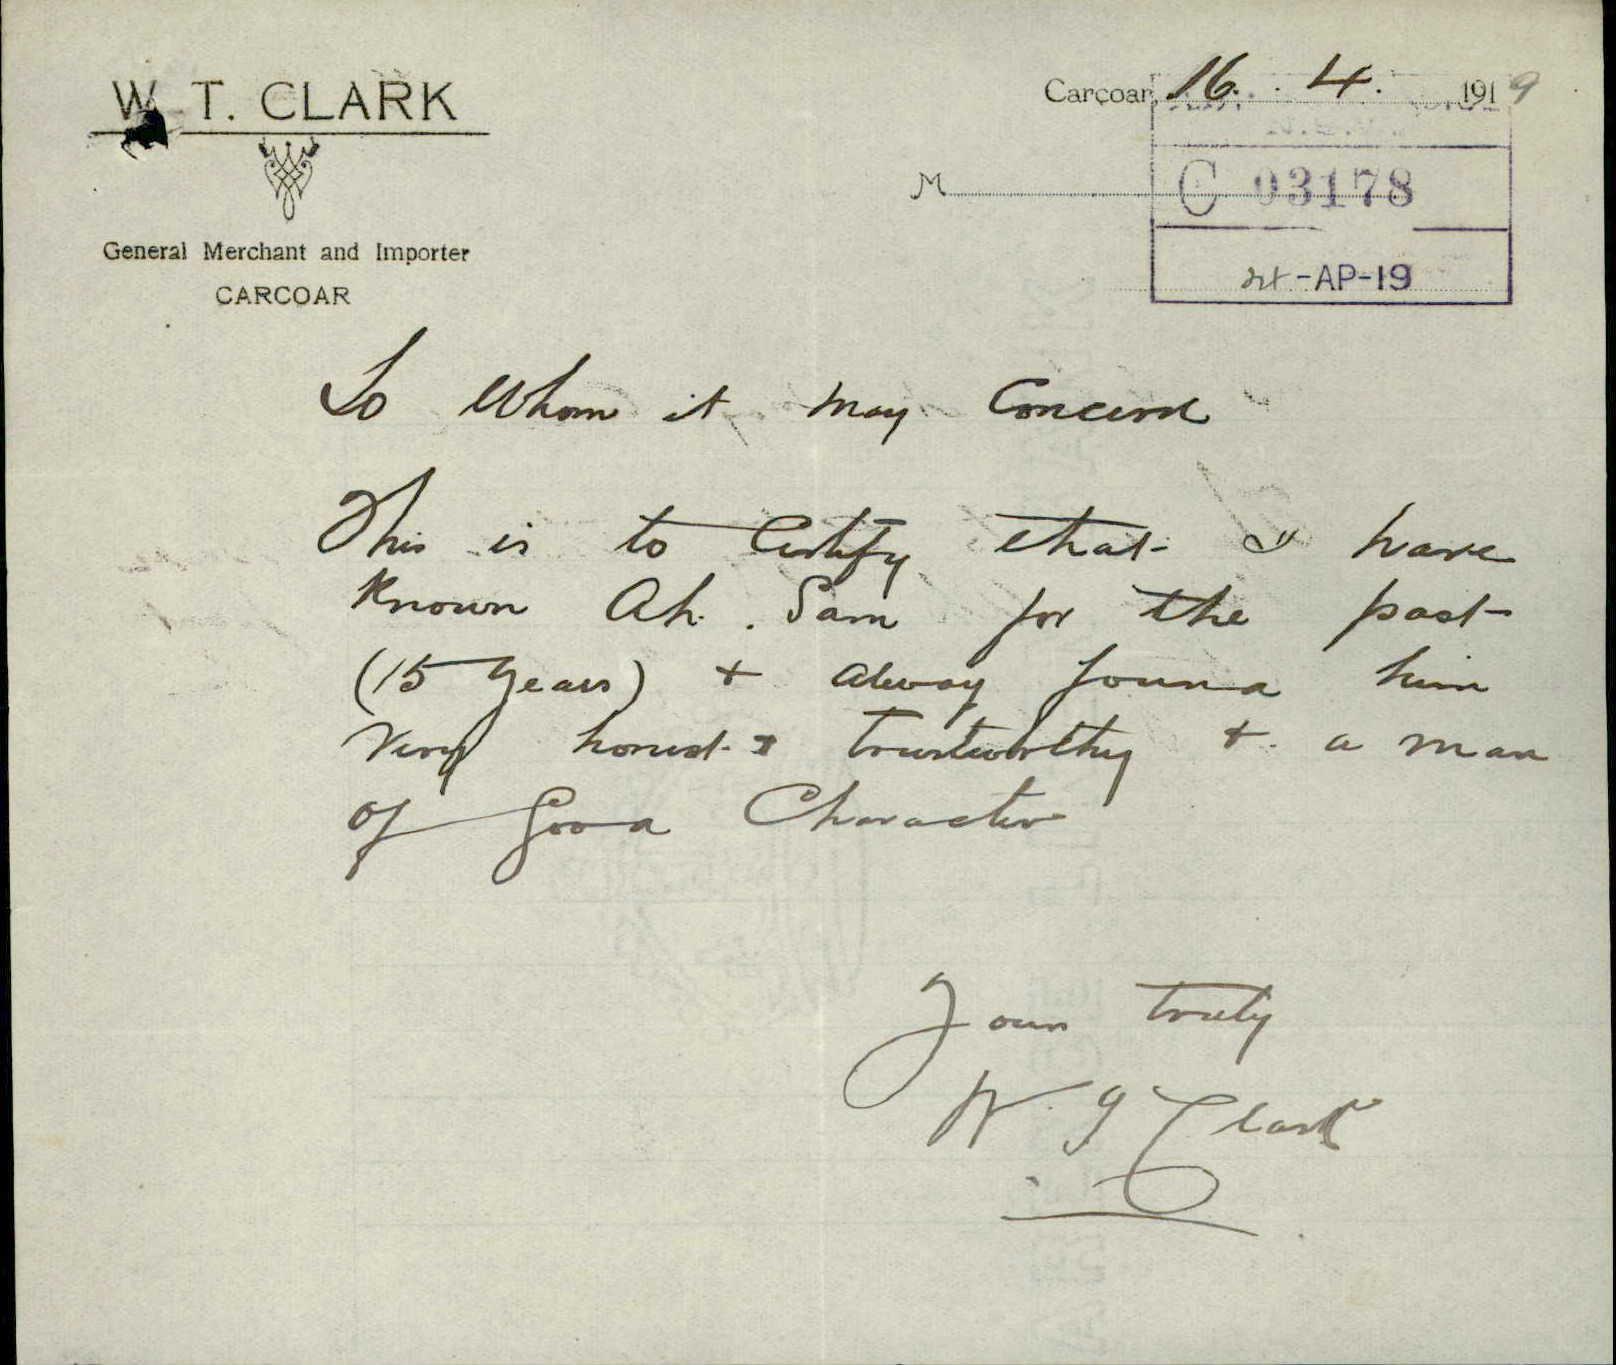 W. T. CLARK
General Merchant and Importer
CARCOAR
Carcoar, 16. 4. 1919
M
N.S.W.
C 03178
24-AP-19
To Whom it may Concern
This is to Certify that I have
Known Ah. Sam for the past
(15 years) + alway found him
Very honest + trustworthy + a man
of Good Character
Yours truly
W. T Clark